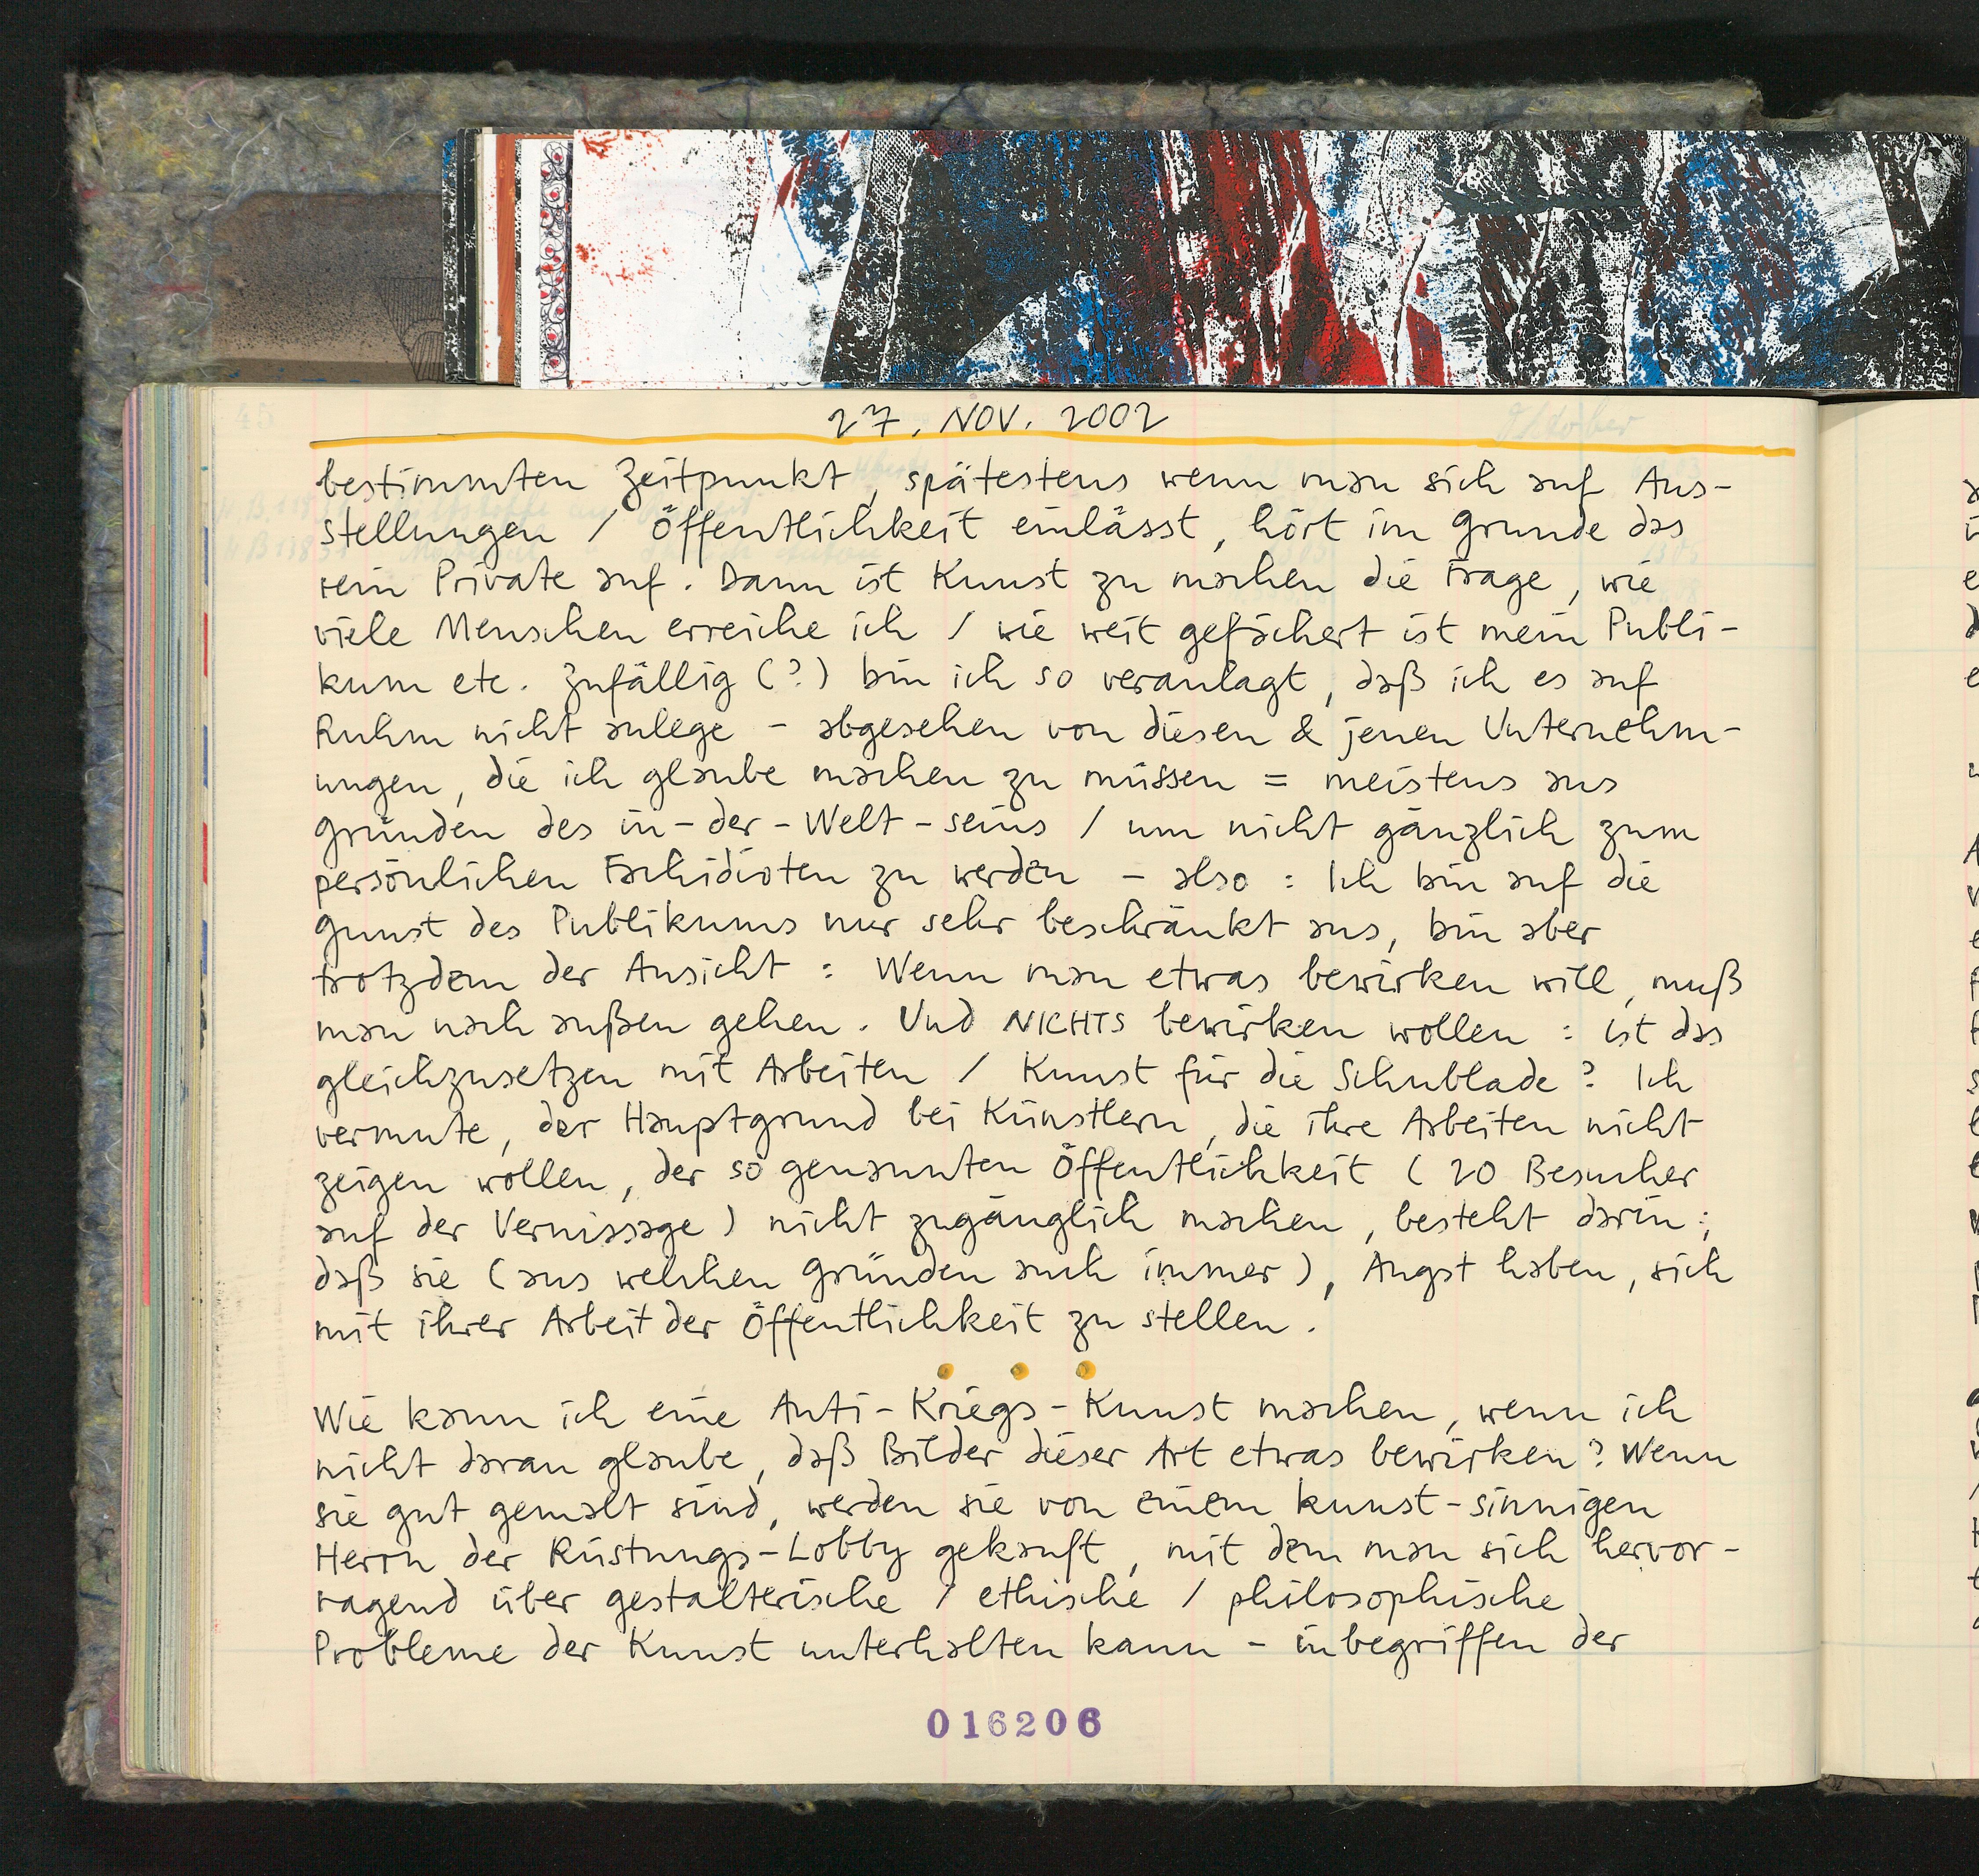 27. NOV. 2002
bestimmten Zeitpunkt, spätestens wenn man sich auf Aus-
stellungen / Öffentlichkeit einlässt, hört im Grunde das
rein Private auf. Dann ist Kunst zu machen die Frage, wie
viele Menschen erreiche ich / wie weit gefächert ist mein Publi-
kum etc. Zufällig (?) bin ich so veranlagt, daß ich es auf
Ruhm nicht anlege - abgesehen von diesen & jenen Unternehm-
ungen, die ich glaube machen zu müssen = meistens aus
Gründen des in-der-Welt-seins / um nicht gänzlich zum
persönlichen Fachidioten zu werden - also : Ich bin auf die
Gunst des Publikums nur sehr beschränkt aus, bin aber
trotzdem der Ansicht : Wenn man etwas bewirken will, muß
man nach außen gehen. Und NICHTS bewirken wollen : ist das
gleichzusetzen mit Arbeiten / Kunst für die Schublade? Ich
vermute, der Hauptgrund bei Künstlern, die ihre Arbeiten nicht
zeigen wollen, der so genannten Öffentlichkeit (20 Besucher
auf der Vernissage) nicht zugänglich machen, besteht darin:,
daß sie (aus welchen Gründen auch immer), Angst haben, sich
mit ihrer Arbeit der Öffentlichkeit zu stellen.
Wie kann ich eine Anti-Kriegs-Kunst machen, wenn ich
nicht daran glaube, daß Bilder dieser Art etwas bewirken? Wenn
sie gut gemalt sind, werden sie von einem kunst-sinnigen
Herrn der Rüstungs-Lobby gekauft, mit dem man sich hervor-
ragend über gestalterische / ethische / philosophische
Probleme der Kunst unterhalten kann - inbegriffen der
016206